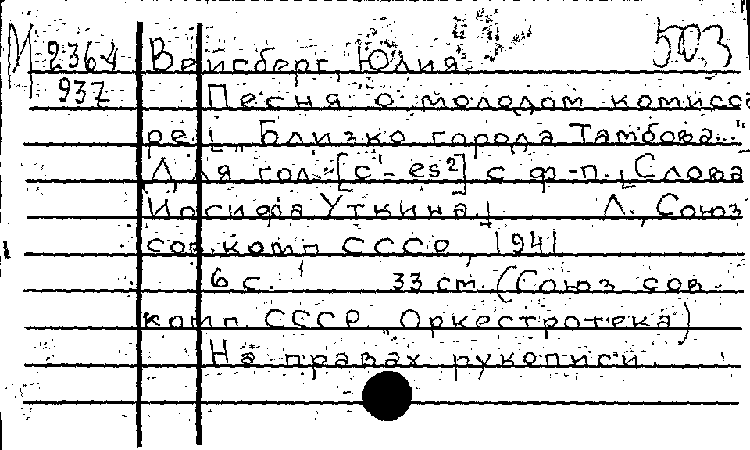 М 2364 Вейсберг, Юлия. 503
937 Песня о молодом комисса-
ре. [„Близко города Тамбова..."
Для гол. [c¹-es²] с ф-п. Слова
Иосифа Уткина.] Л., Союз
сов. комп. СССР, 1941
6 с. 33 см. (Союз сов.
комп. СССР. Оркестротека)
На правах рукописи